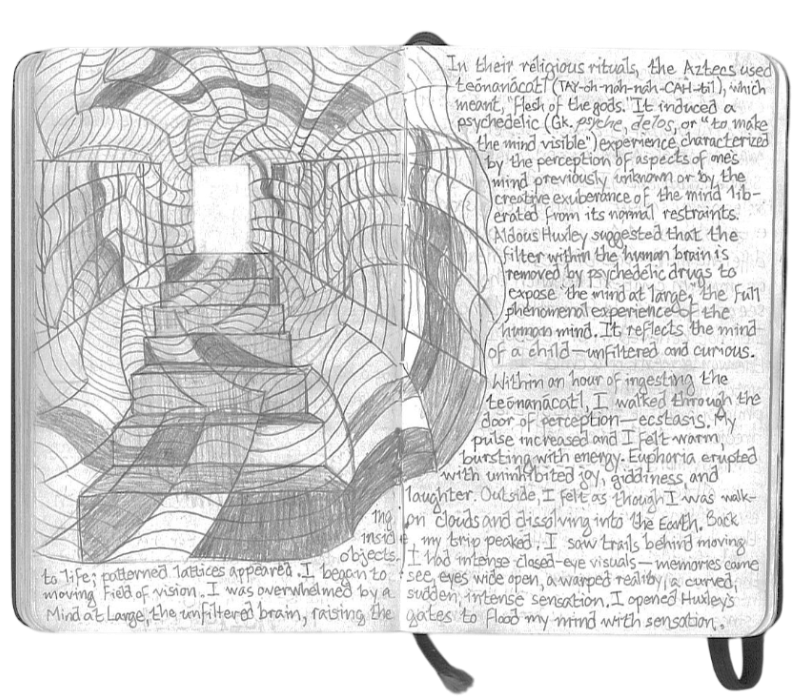 In their religious rituals, the Aztecs used
teōnanácatl (TAY-oh-nah-nah-CAH-til), which
meant, "flesh of the gods." It induced a
psychedelic (Gk. psyche, delos, or "to make
the mind visible") experience characterized
by the perception of aspects of one's
mind previously unknown or by the
creative exuberance of the mind lib-
erated from its normal restraints.
Aldous Huxley suggested that the
filter within the human brain is
removed by psychedelic drugs to
expose "the mind at large," the full
phenomenal experience of the
human mind. It reflects the mind
of a child—unfiltered and curious.
Within an hour of ingesting the
teōnanácatl, I walked through the
door of perception—ecstasis. My
pulse increased and I felt warm,
bursting with energy. Euphoria erupted
with uninhibited joy, giddiness, and
laughter. Outside, I felt as though I was walk-
ing on clouds and dissolving into the Earth. Back
inside, my trip peaked. I saw trails behind moving
objects. I had intense closed-eye visuals—memories came
to life; patterned lattices appeared. I began to see, eyes wide open, a warped reality, a curved,
moving field of vision. I was overwhelmed by a sudden, intense sensation. I opened Huxley's
Mind at Large, the unfiltered brain, raising the gates to flood my mind with sensation.